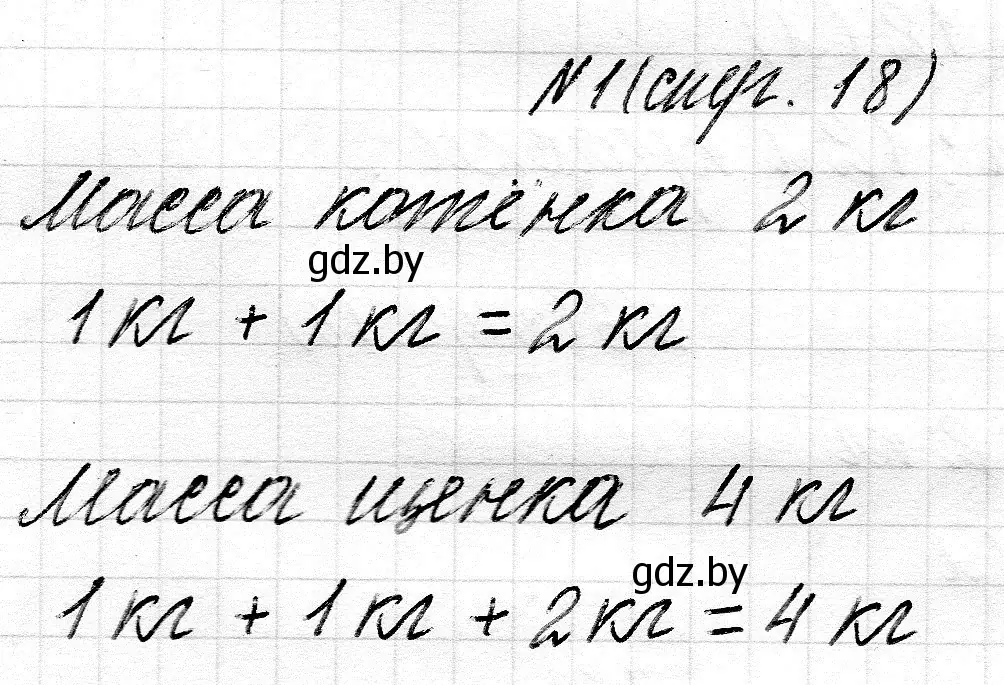 №1(стр. 18)
Масса котёнка 2 кг
gdz.by
1 кг + 1 кг = 2 кг
Масса щенка 4 кг
gdz.by
1 кг + 1 кг + 2 кг = 4 кг